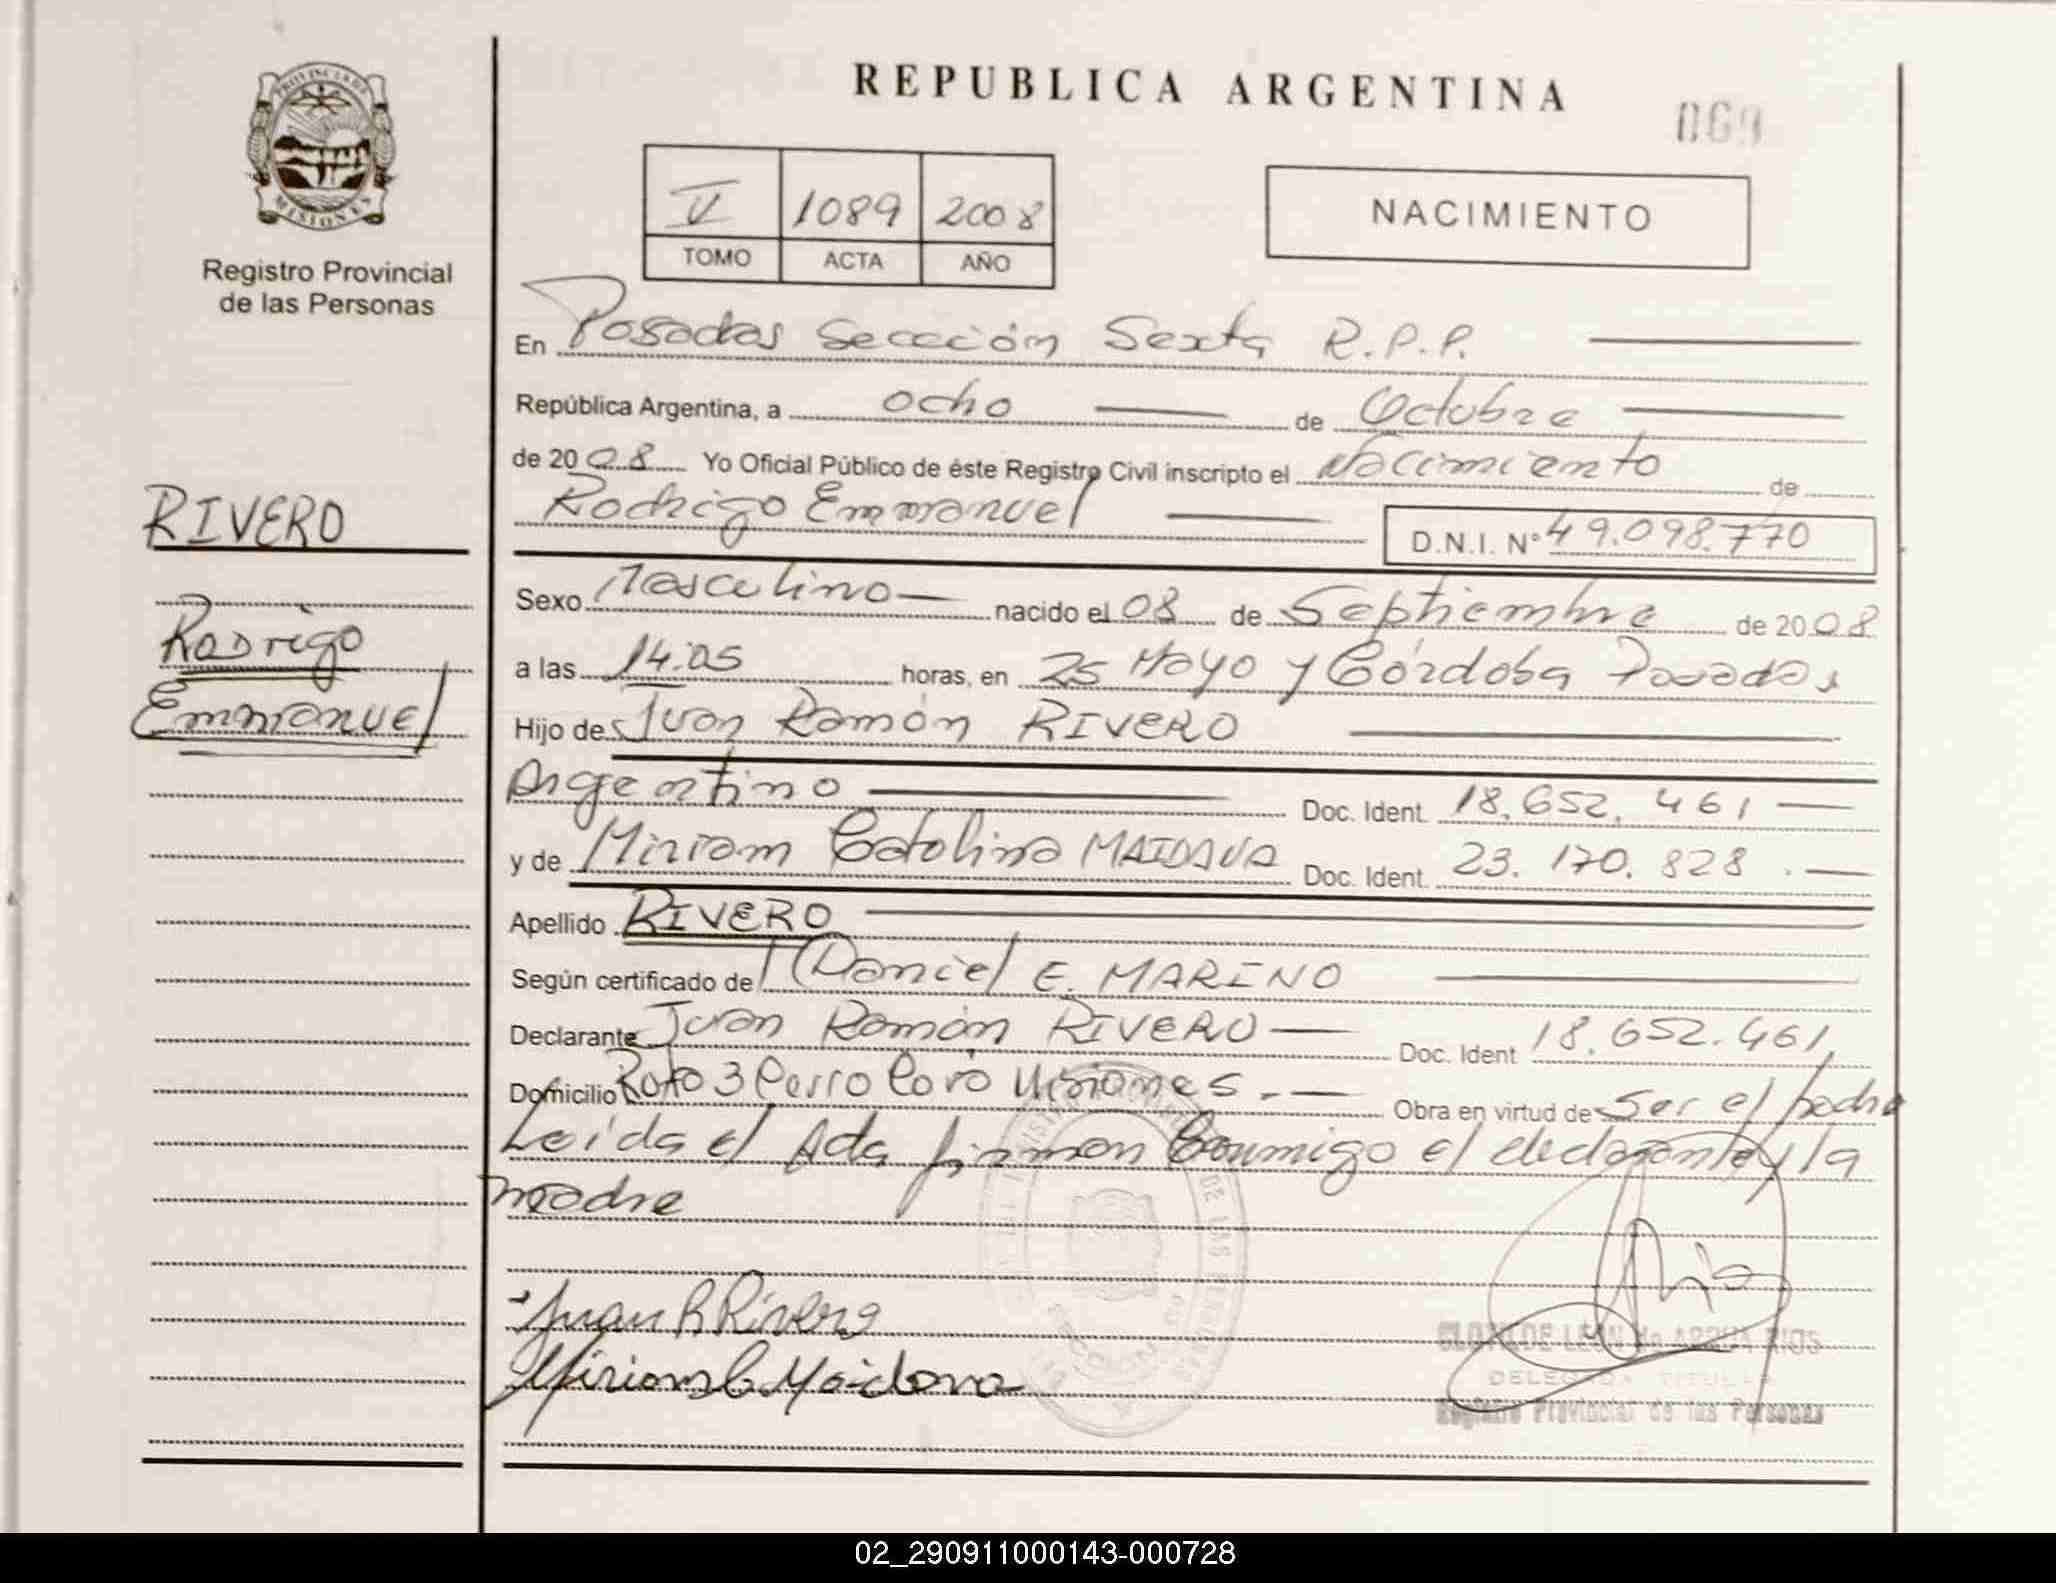 PROVINCIA DE
MISIONES
Registro Provincial
de las Personas
REPUBLICA ARGENTINA
069
V 1089 2008
TOMO ACTA AÑO
NACIMIENTO
En Posadas Sección Sexta R.P.P.
República Argentina, a ocho de Octubre
de 2008 Yo Oficial Público de éste Registro Civil inscripto el Nacimiento de
Rodrigo Emmanuel D.N.I. N° 49.098.770
RIVERO
Rodrigo
Emmanuel
Sexo Masculino nacido el 08 de Septiembre de 2008
a las 14:05 horas, en 25 Mayo y Córdoba Posadas
Hijo de Juan Ramón RIVERO
Argentino Doc. Ident. 18.652.461
y de Miriam Catolina MAIDANA Doc. Ident. 23.170.828.
Apellido RIVERO
Según certificado de Daniel E. MARINO
Declarante Juan Ramón RIVERO Doc. Ident 18.652.461
Domicilio Ruta 3 Cerro Corá Misiones. Obra en virtud de Ser el padre
Leída el Acta firman Conmigo el declarante y la
madre
Juan R Rivero
Miriam C Maidana
CLOTILDE LEON de ARRUA RIOS
DELEGADA TITULAR
Registro Provincial de las Personas
02_290911000143-000728